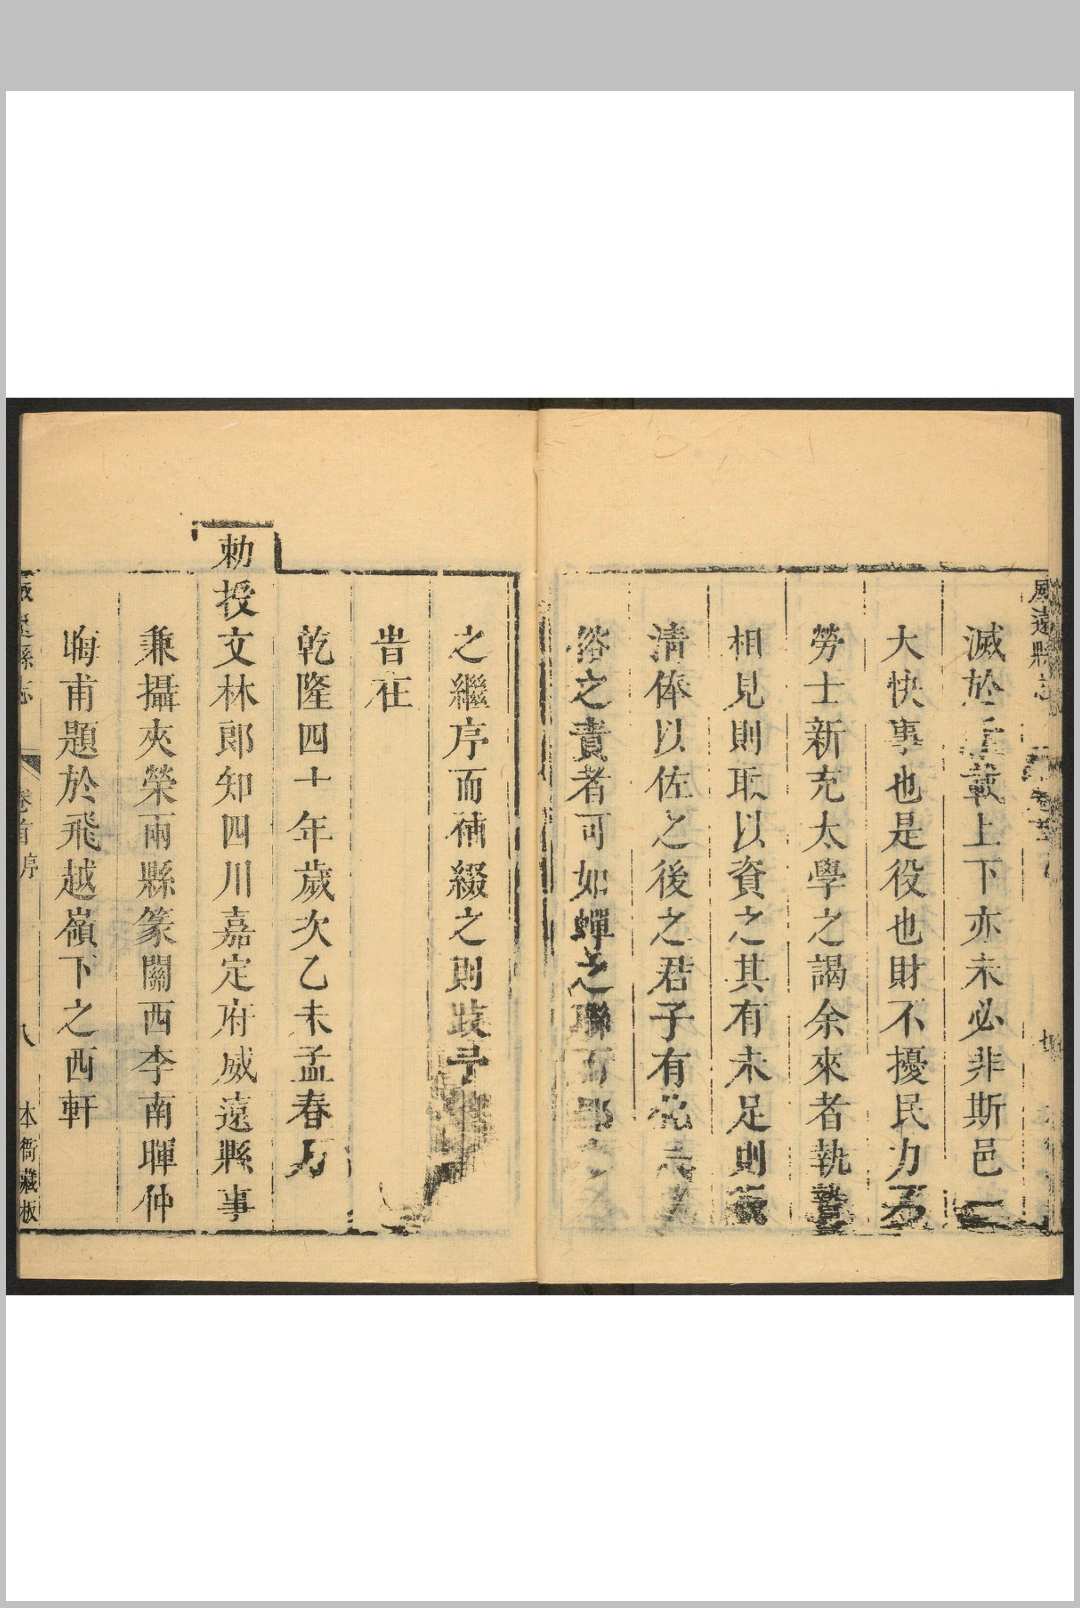 威遠縣志
滅於千載上下亦未必非斯邑一
大快事也是役也財不擾民力不
勞士新充太學之謁余來者執贄
相見則取以資之其有未足則
清俸以佐之後之君子有
俗之責者可如蟬之聯
之繼序而補綴之則
旹在
乾隆四十年歲次乙未孟春月
勅授文林郎知四川嘉定府威遠縣事
兼攝夾榮兩縣篆關西李南暉仲
晦甫題於飛越嶺下之西軒
威遠縣志 卷首 序 八 本衙藏板